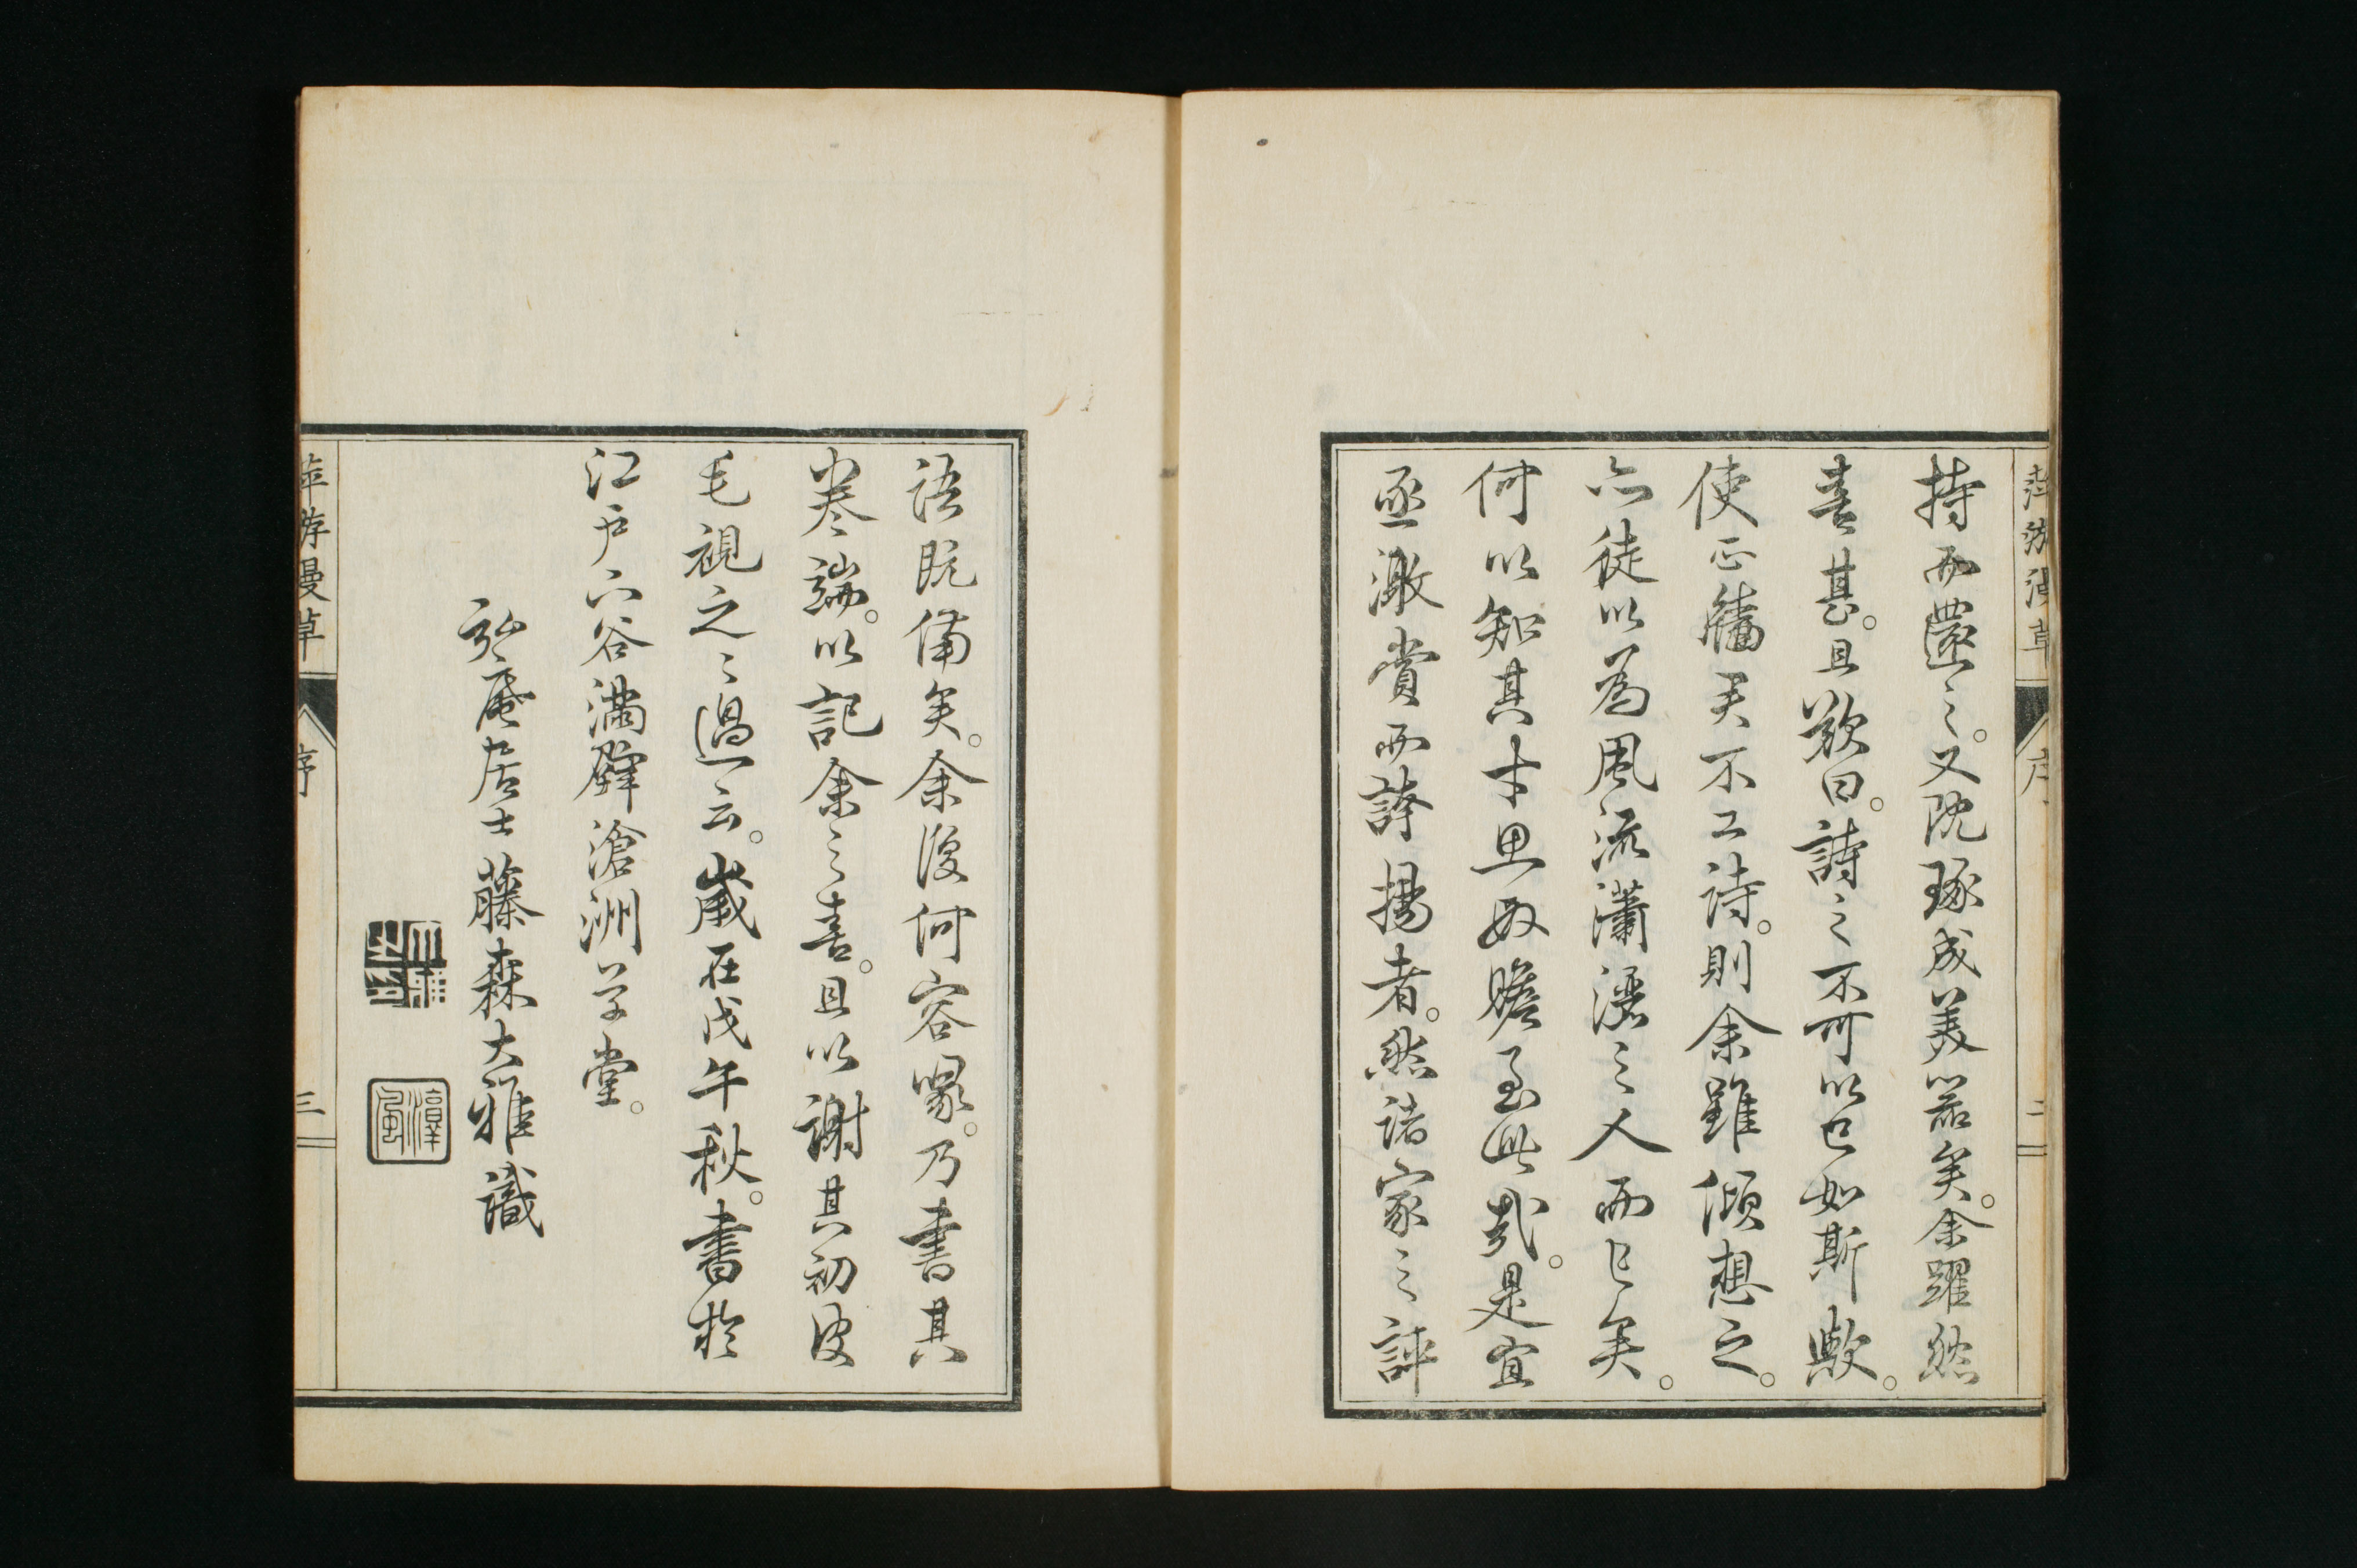 萍游漫草 序 二
持而還之。又既琢成美器矣。余躍然
喜甚。且歎曰。詩之不可以已如斯歟。
使正藩君不工詩。則余雖傾想之。
亦徒以為風流瀟灑之人而已矣。
何以知其才思敏贍至此哉。是宜
亟激賞而誇揚者。然諸家之評
語既備矣。余復何容喙。乃書其
巻端。以記余之喜。且以謝其初皮
毛視之之過云。嵗在戊午秋。書於
江戸六谷滿壁滄洲草堂。
弘庵居士藤森大雅識
萍游漫草 序 三